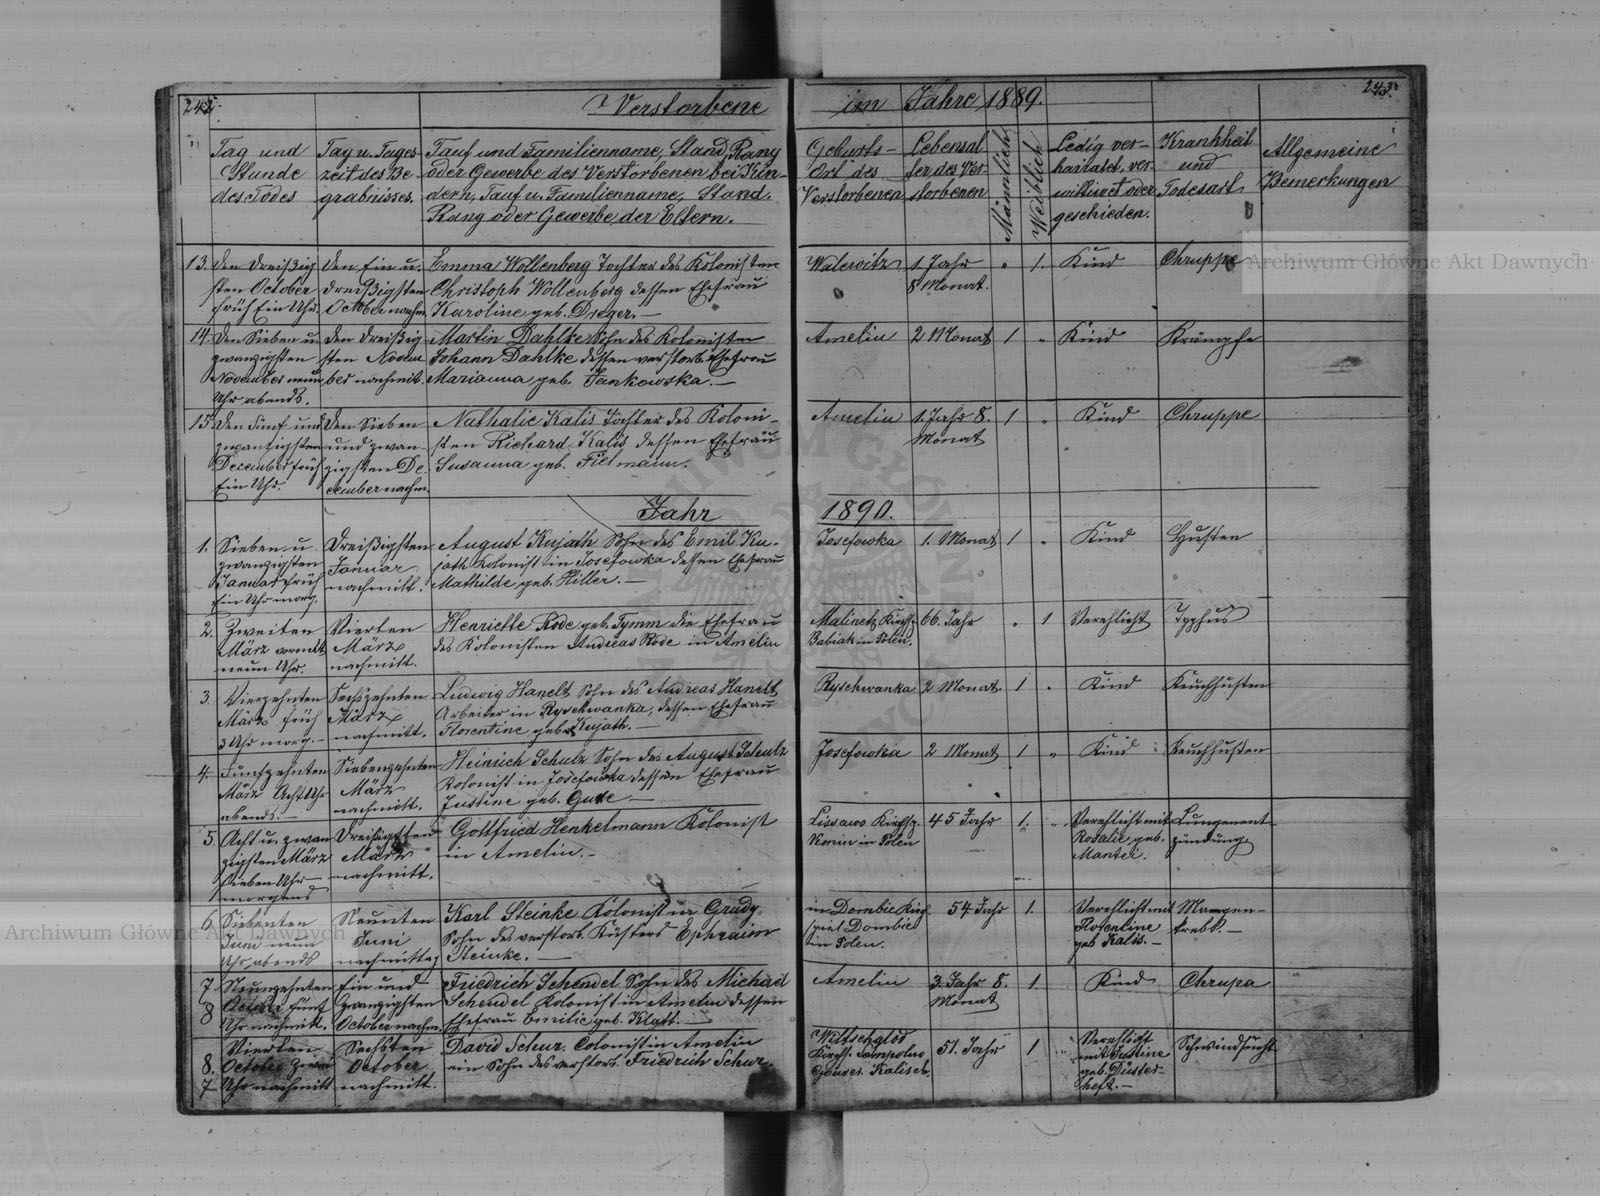 242.
Verstorbene im Jahre 1889.
243.
Tag und
Stunde
des Todes
Tag u. Tages-
zeit des Be-
gräbnisses.
Tauf und Familienname, Stand, Rang
oder Gewerbe des Verstorbenen bei Kin-
dern, Tauf u. Familienname, Stand.
Rang oder Gewerbe der Eltern.
Geburts-
Ort des
Verstorbenen
Lebensal
ter des Ver
storbenen
Männlich
Weiblich
Ledig ver-
hairatet, ver-
wittwet oder
geschieden.
Krankheit
und
Todesart
Allgemeine
Bemerkungen
13. den dreißig
sten October
früh Ein Uhr.
den Ein u.
dreißigsten
October nachm.
Emma Wollenberg Tochter des Kolonisten
Christoph Wollenberg dessen Ehefrau
Karoline geb. Dreger.—
Walewitz
1. Jahr
8 Monat.
" 1. Kind Chruppe
14. den Sieben u.
zwanzigsten
November neun
Uhr abends.
den dreißig
sten Novem
ber nachmit.
Martin Dahlke Sohn des Kolonisten
Johann Dahlke dessen verstorb. Ehefrau
Marianna geb. Jankowska.—
Amelin 2 Monat 1 " Kind Krämpfe
15. den Fünf und
zwanzigsten
December früh
Ein Uhr.
den Sieben
und zwan
zigsten De
cember nachm.
Nathalie Kalis Tochter des Koloni-
sten Richard Kalis dessen Ehefrau
Susanna geb. Fielmann.
Amelin 1. Jahr 8.
Monat
1 " Kind Chruppe
Jahr 1890.
1. Sieben u.
zwanzigsten
Januar früh
Ein Uhr morg.
Dreißigsten
Januar
nachmitt.
August Kujath Sohn des Emil Ku-
jath Kolonist in Josefowka dessen Ehefrau
Mathilde geb. Hiller.—
Josefowka 1. Monat 1 " Kind Husten
2. Zweiten
März vormitt
neun Uhr.
Vierten
März
nachmitt.
Henriette Rode geb. Tymm die Ehefrau
des Kolonisten Andreas Rode in Amelin
Malinetz Kirchsp.
Babiak in Polen.
66. Jahr " 1 Verehlicht Typhus
3. Vierzehnten
März früh
3 Uhr morg.—
Sechszehnten
März
nachmitt.
Ludwig Hanelt Sohn des Andreas Hanelt
Arbeiter in Ryschwanka, dessen Ehefrau
Florentine geb. Kujath.—
Ryschwanka 2 Monat. 1 " Kind Keuchhusten
4. Fünfzehnten
März Acht Uhr
abends.—
Siebenzehnten
März
nachmitt.
Heinrich Schulz Sohn des August Schulz
Kolonist in Josefowka dessen Ehefrau
Justine geb. Gude—
Josefowka 2 Monat 1 " Kind Keuchhusten
5. Acht u. zwan
zigsten März
sieben Uhr
morgens
Dreißigsten
März
nachmitt.
Gottfried Henkelmann Kolonist
in Amelin.—
Lissawo Kirchsp.
Konin in Polen
45 Jahr 1. " Verehlicht mit
Rosalie, geb.
Mantei.
Lungenent-
zündung
6. Siebenten
Juni neun
Uhr, abends
Neunten
Juni
nachmittag
Karl Steinke Kolonist in Grudy
Sohn des verstorb. Küsters Ephraim
Steinke.—
in Dombie Kirch
spiel Dombie
in Polen.
54 Jahr 1. Verehlicht mit
Florentine
geb. Kalis.—
Magen-
krebß.—
7.
8
Neunzehnten
October fünf
Uhr nachmitt.
Ein und
Zwanzigsten
October nachm.
Friedrich Schendel Sohn des Michael
Schendel Kolonist in Amelin dessen
Ehefrau Emilie geb. Klatt.—
Amelin 3. Jahr 8.
Monat
1. Kind Chrupa
8.
7
Vierten
October zwei
Uhr nachmitt
Sechsten
October
nachmitt.
David Schur. Colonist in Amelin
ein Sohn des verstorb. Friedrich Schur.
Kirchs. Sompolno
Gouver. Kalisch.
51. Jahr 1 " Verehlicht
mit Justine
geb. Düster-
heft.—
Schwindsucht
Archiwum Główne Akt Dawnych
Archiwum Główne Akt Dawnych